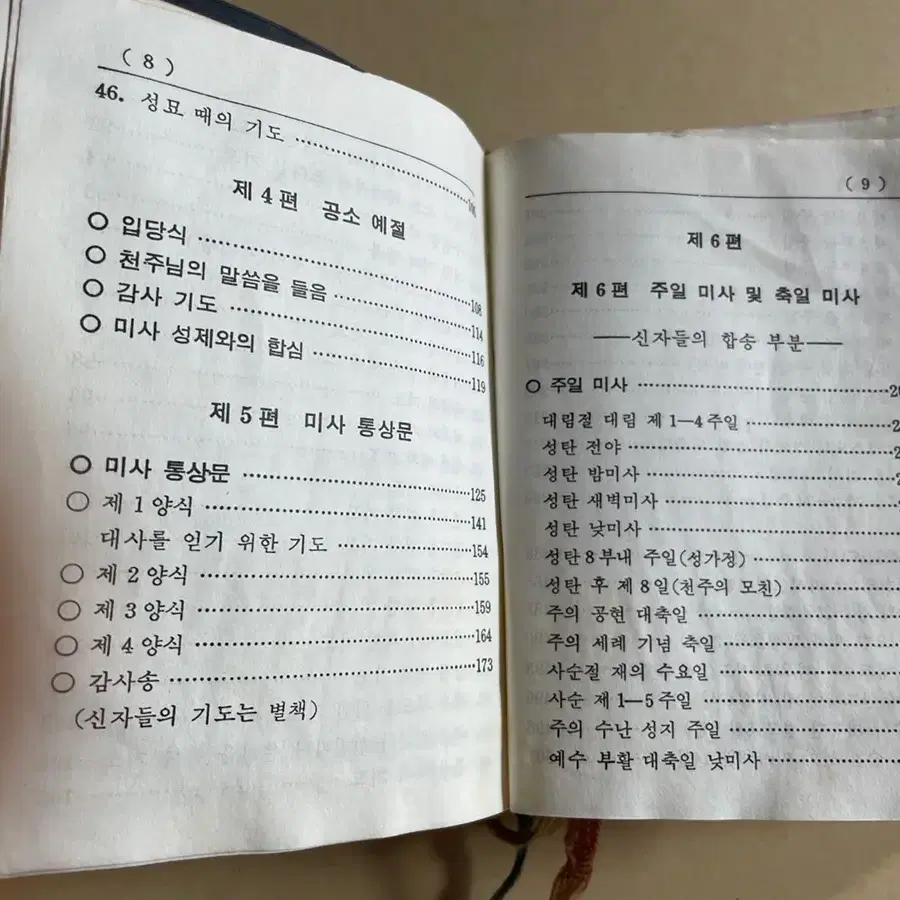 ( 8 )
46. 성묘 때의 기도
제 4 편 공소 예절
○ 입당식 108
○ 천주님의 말씀을 들음 114
○ 감사 기도 116
○ 미사 성제와의 합심 119
제 5 편 미사 통상문
○ 미사 통상문 125
○ 제 1 양식 141
대사를 얻기 위한 기도 154
○ 제 2 양식 155
○ 제 3 양식 159
○ 제 4 양식 164
○ 감사송 173
(신자들의 기도는 별책)
( 9 )
제 6 편
제 6 편 주일 미사 및 축일 미사
——신자들의 합송 부분——
○ 주일 미사
대림절 대림 제 1—4 주일
성탄 전야
성탄 밤미사
성탄 새벽미사
성탄 낮미사
성탄 8 부내 주일(성가정)
성탄 후 제 8 일(천주의 모친)
주의 공현 대축일
주의 세례 기념 축일
사순절 재의 수요일
사순 제 1—5 주일
주의 수난 성지 주일
예수 부활 대축일 낮미사